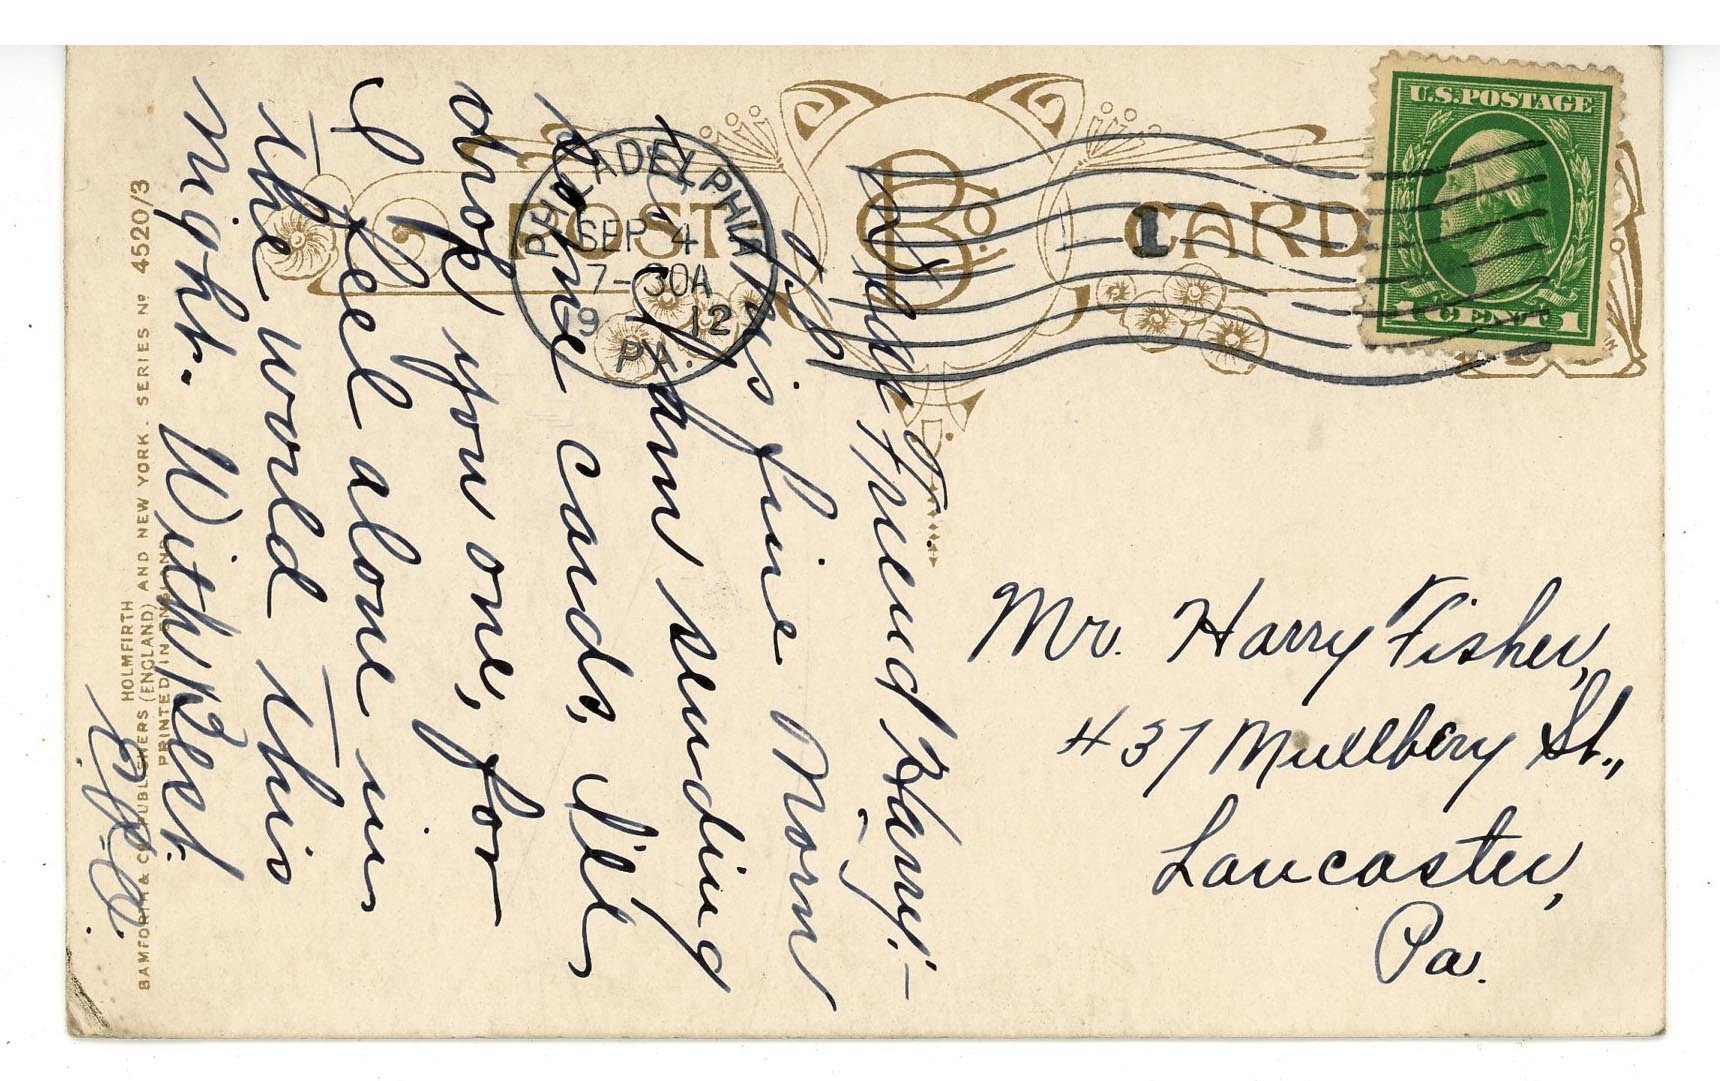 POST CARD
B & Co. Ltd.
U.S. POSTAGE
1 CENT 1
PHILADELPHIA
SEP 4
7-30A
19 12
PA.
1
Dear Friend Harry:—
fine Morn
I am sending
some cards, I'll
drop you one, for
I feel alone in
the world this
night. With Best
Mr. Harry Fisher,
437 Mullbery St.,
Lancaster,
Pa.
HOLMFIRTH
BAMFORTH & CO PUBLISHERS (ENGLAND) AND NEW YORK. SERIES Nº 4520/3
PRINTED IN ENGLAND